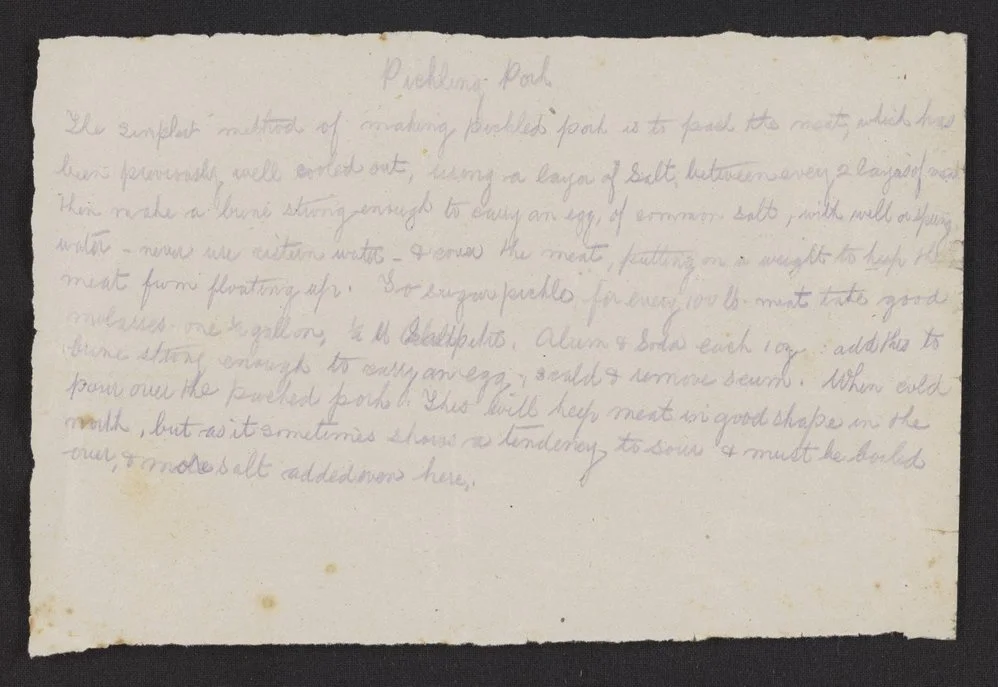 Pickling Pork
The simplest method of making pickled pork is to pack the meat, which has
been previously well cooled out, using a layer of Salt, between every 2 layers of meat
Then make a brine strong enough to carry an egg, of common salt, with well or spring
water - never use cistern water - & cover the meat, putting on a weight to keep the
meat from floating up. To sugar pickle, for every 100 lb. meat take good
molasses one ½ gallon, ¼ lb Saltpetre. Alum & Soda each 1 oz. add this to
brine strong enough to carry an egg, scald & remove scum. When cold
pour over the packed pork. This will keep meat in good shape in the
north, but as it sometimes shows a tendency to sour & must be boiled
over, & more salt added even here.